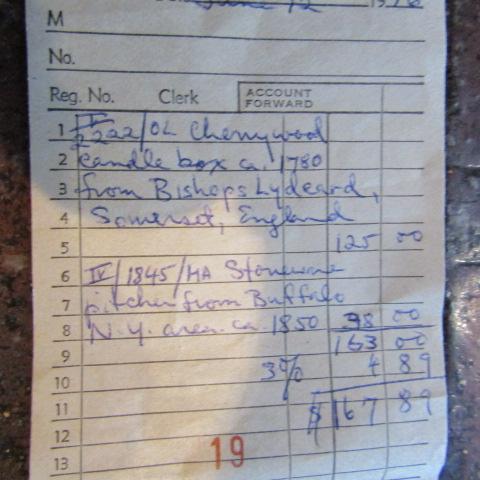 June 12 19
M
No.
Reg. No. Clerk ACCOUNT FORWARD
1 2222/OL Cherrywood
2 candle box ca. 1780
3 from Bishops Lydeard,
4 Somerset, England
5 125 00
6 IV/1845/MA Stoneware
7 pitcher from Buffalo
8 N.Y. area ca. 1850 38 00
9 163 00
10 3% 4 89
11 $ 167 89
12
13 19